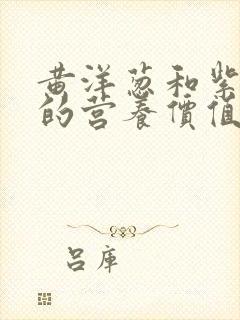 黄洋葱和紫
的营养價值
吕庫